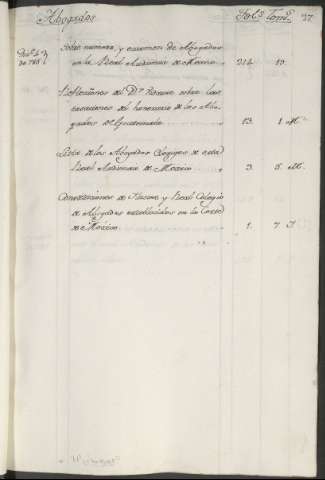 Abogados Fol.s Tom.s 37
Sobre numero, y examen de Abogados
en la Real Audiencia de Mexico 214. 19.
de 785
Reflexiones del D.r sobre las
tasaciones del honorario de los Abo-
gados de Guatemala 13. 1. M.
Lista de los Abogados Colegiales de esta
Real Audiencia de Mexico 3. 5. M.
Constituciones de Ylustre y Real Colegio
de Abogados establecidos en la Corte
de Mexico 1. 7. J.